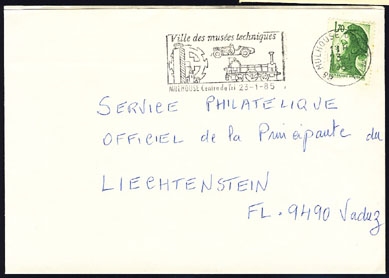 Ville des musées techniques
MULHOUSE Centre de Tri 23-1-85
MULHOUSE
68
1,70
SERVICE PHILATELIQUE
OFFICIEL de la Principaute du
LIECHTENSTEIN
FL. 9490 Vaduz